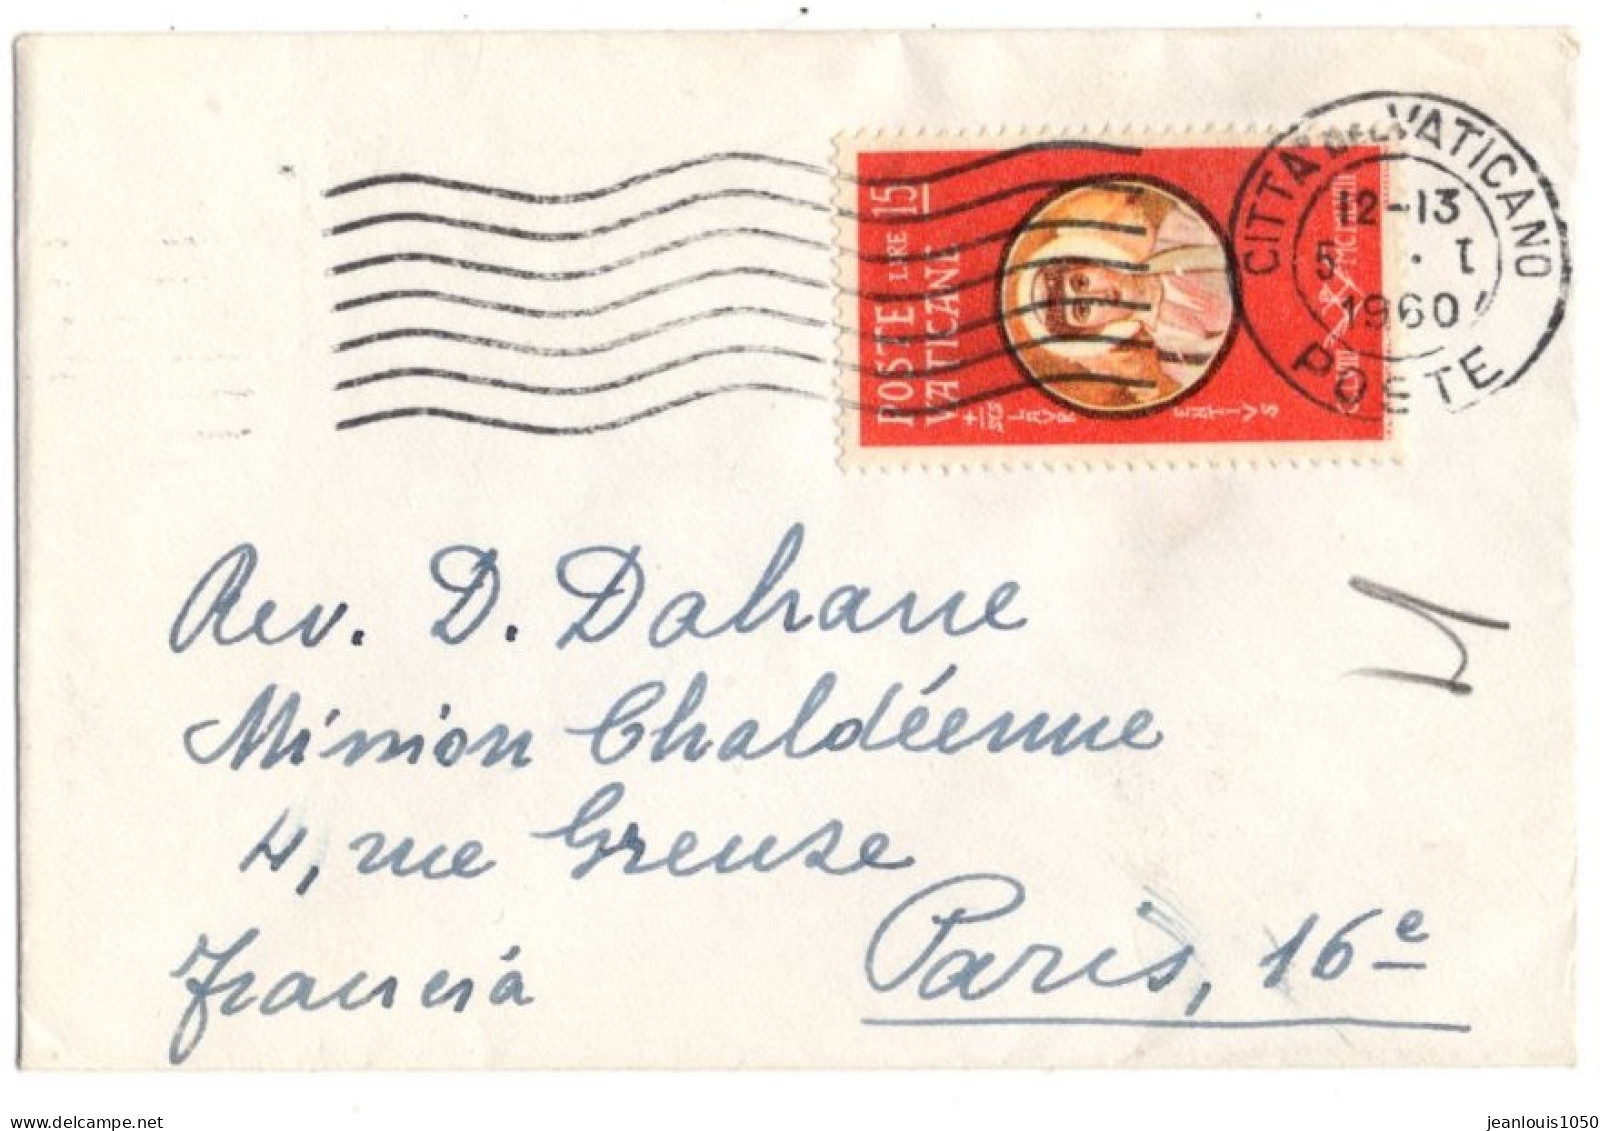 CITTA DEL VATICANO
12-13
5 . I
1960
POSTE
POSTE LIRE 15
VATICANE
Rev. D. Dahane
Mission Chaldéenne
4, rue Greuze
Paris, 16e
Francia
jeanlouis1050